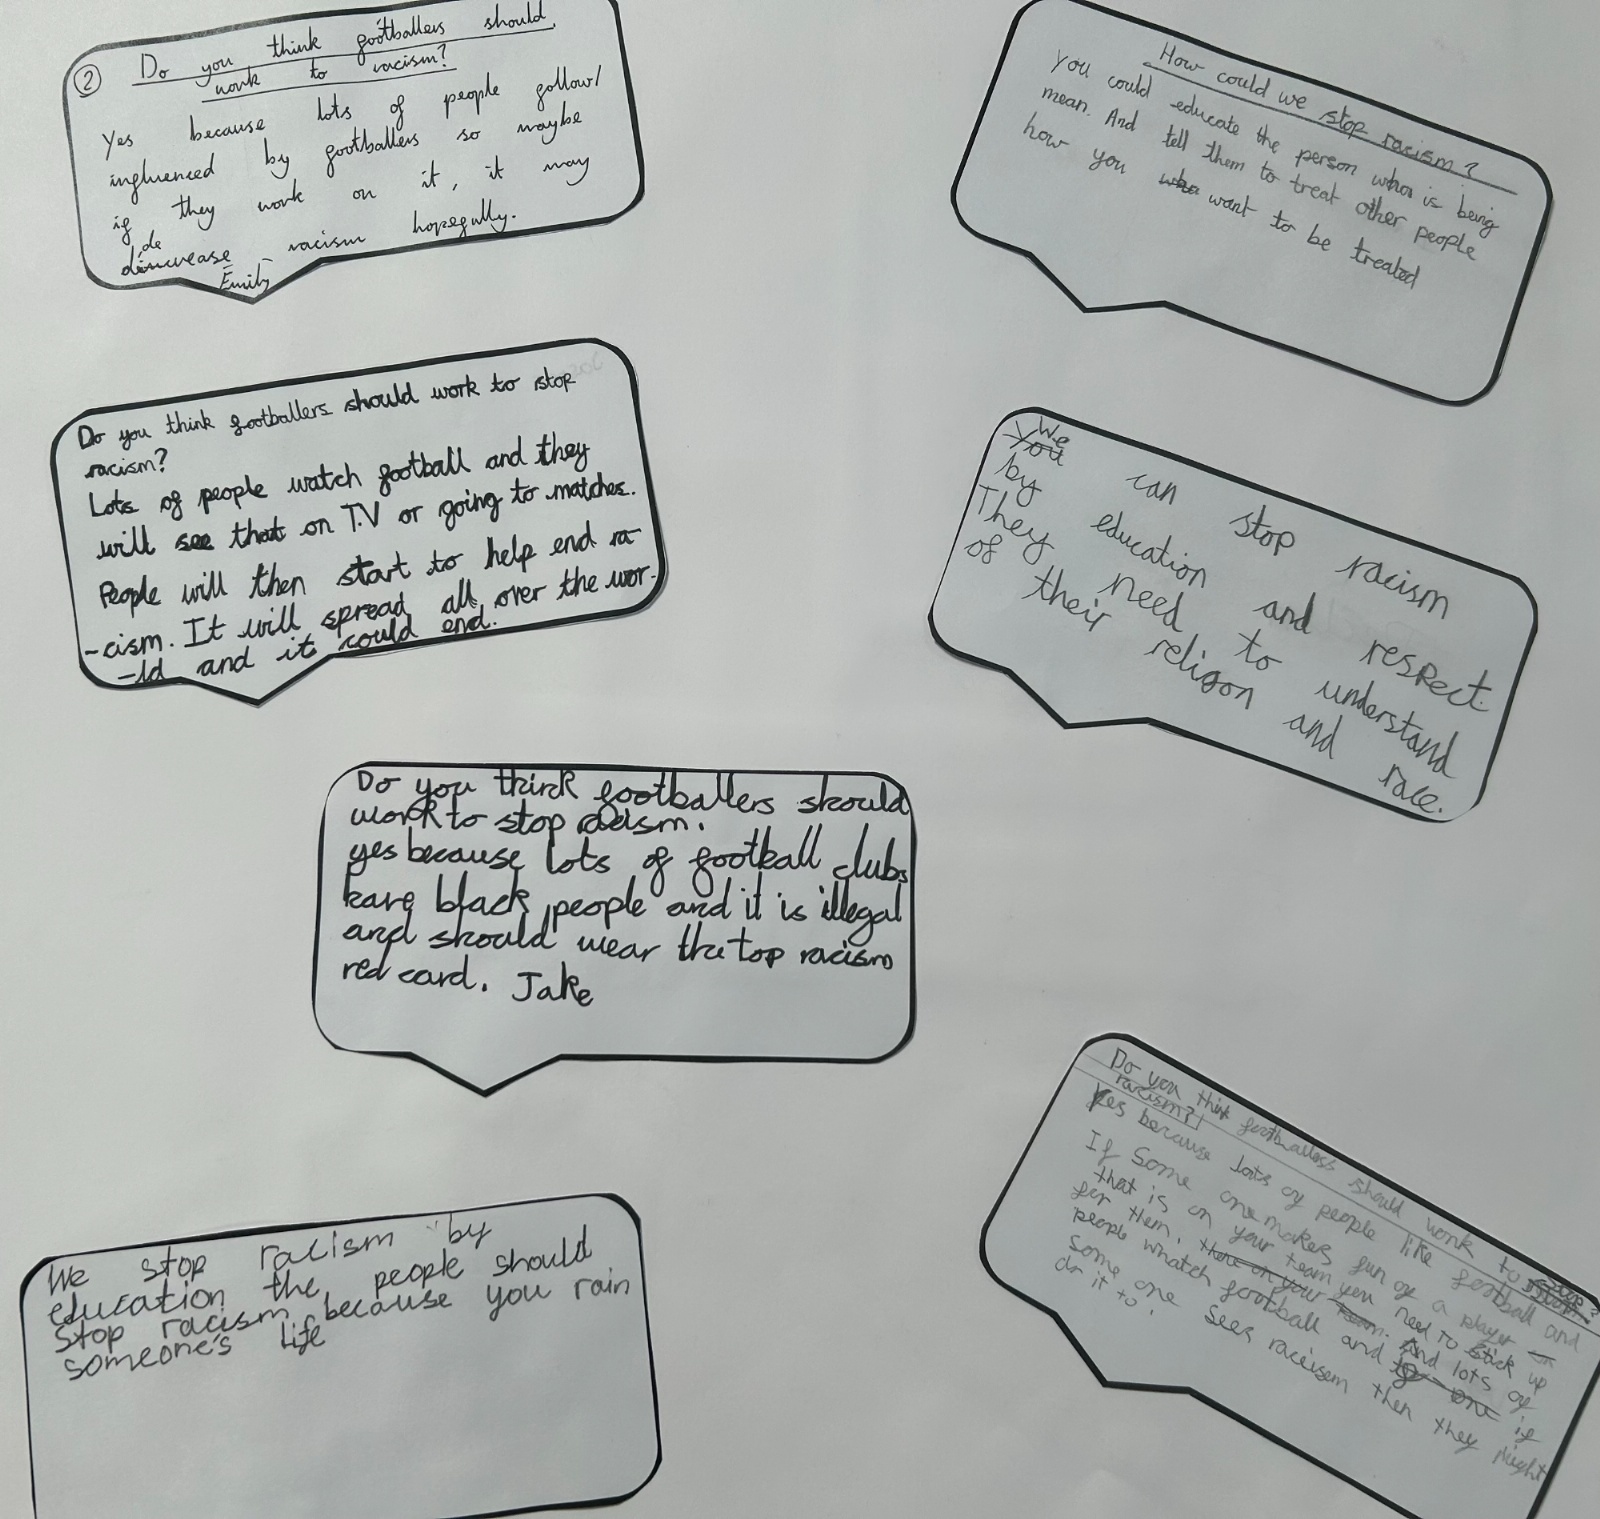 ② Do you think footballers should
work to racism?
Yes because lots of people follow/
influenced by footballers so maybe
if they work on it, it may
de
disincrease racism hopefully.
- Emily -
How could we stop racism?
You could educate the person who is being
mean. And tell them to treat other people
how you who want to be treated
Do you think footballers should work to stop
racism?
Lots of people watch football and they
will see that on T.V or going to matches.
People will then start to help end ra-
-cism. It will spread all over the wor-
-ld and it could end.
We
You can stop racism
by education and respect.
They need to understand
of their religon and race.
Do you think footballers should
work to stop racism.
yes because lots of football clubs
have black people and it is illegal
and should wear the top racism
red card. Jake
Do you think footballers should work to stop
racism?
Yes because lots of people like football and
If Some one makes fun of a player
that is on your team you need to stick up
for them. there on your team. And lots of
people whatch football and if one if
some one sees raceisem then they might
do it to.
We stop racism by
education the people should
stop racism because you rain
someone's life